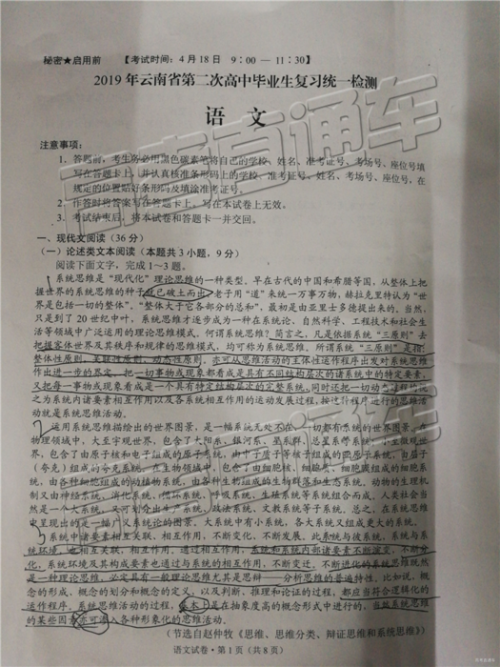 秘密★启用前 【考试时间：4月18日 9∶00—11∶30】
2019年云南省第二次高中毕业生复习统一检测
语 文
注意事项：
1．答题前，考生务必用黑色碳素笔将自己的学校、姓名、准考证号、考场号、座位号填
写在答题卡上，并认真核准条形码上的学校、姓名、准考证号、考场号、座位号，在
规定的位置贴好条形码及填涂准考证号。
2．作答时将答案写在答题卡上。写在本试卷上无效。
3．考试结束后，将本试卷和答题卡一并交回。
一、现代文阅读（36分）
（一）论述类文本阅读（本题共3小题，9分）
阅读下面文字，完成1～3题。
系统思维是“现代化”理论思维的一种类型。早在古代的中国和希腊等国，从整体上把
握世界的系统思维的种子就已破土而出。老子用“道”来统一万事万物，赫拉克里特认为“世
界是包括一切的整体”、“整体大于它各部分的总和”，最初是由亚里士多德提出来的。当然，
只是到了20世纪中叶，系统思维才逐步成为一种在系统论、自然科学、工程技术和社会生
活等领域中广泛运用的理论思维模式。何谓系统思维？简言之，凡是依据系统“三原则”去
把握客体世界及其秩序和规律的思维模式，均可称为系统思维。所谓系统“三原则”是指：
整体性原则、关联性原则、动态性原则。亦可从系统思维活动的主体性运作程序出发对系统思维
作出进一步的界定，把一切事物或现象都看成是具有不同结构层次的诸系统中的特定要素，
又把每一事物或现象看成是一个具有特定结构层次的完整系统，同时还把一切动
之为诸系统内要素相互作用以及各系统相互作用的运动发展过程，按这种程序进行的思维活
动就是系统思维活动。
运用系统思维描绘出的世界图景，是一幅系统无处不在、一切都有系统的世界图景。在
物理领域中，大至宇观世界，包含了太阳系、银河系、星系群、总星系等系统；小至微观世
界，包含了由原子核和电子组成的原子系统、由中子质子等核子组成的原子核系统、由层子
（夸克）组成的夸克系统。在生物领域中，包含了由细胞核、细胞质、细胞膜组成的细胞系
统，由各种细胞组成的动植物系统，由各种生物组成的生物群落和生态系统。动物的生理机
制又由神经系统、消化系统、循环系统、呼吸系统、生殖系统等系统组合而成。人类社会当
然是一个大系统，又可划分出生产系统、政治系统、文教系统等子系统。总之，在系统思维
中呈现出的是一幅广义系统论的图景，大系统中有小系统，各大系统又组成更大的系统。
系统中诸要素相互关联、相互作用、不断变化、不断发展，此系统与彼系统、系统与系
统环境，也相互关联、相互作用。通过相互作用，系统和系统内部诸要素不断演变、不断分
化，系统环境及其构成要素也通过与系统的相互作用，不断变迁、不断进化的系统思维既然
是一种理论思维，必定具有一般理论思维尤其是思辨——分析思维的普遍特性。比如说，概
念的形成、概念的划分和概念的定义，以及判断、推理和论证的过程，都应当符合逻辑化的
运作程序。系统思维活动的过程，基本上是在抽象度高的概念形式中进行的，当然系统思维
的某些因素亦可渗入各种形象化的思维活动。
（节选自赵仲牧《思维、思维分类、辩证思维和系统思维》）
语文试卷·第1页（共8页）